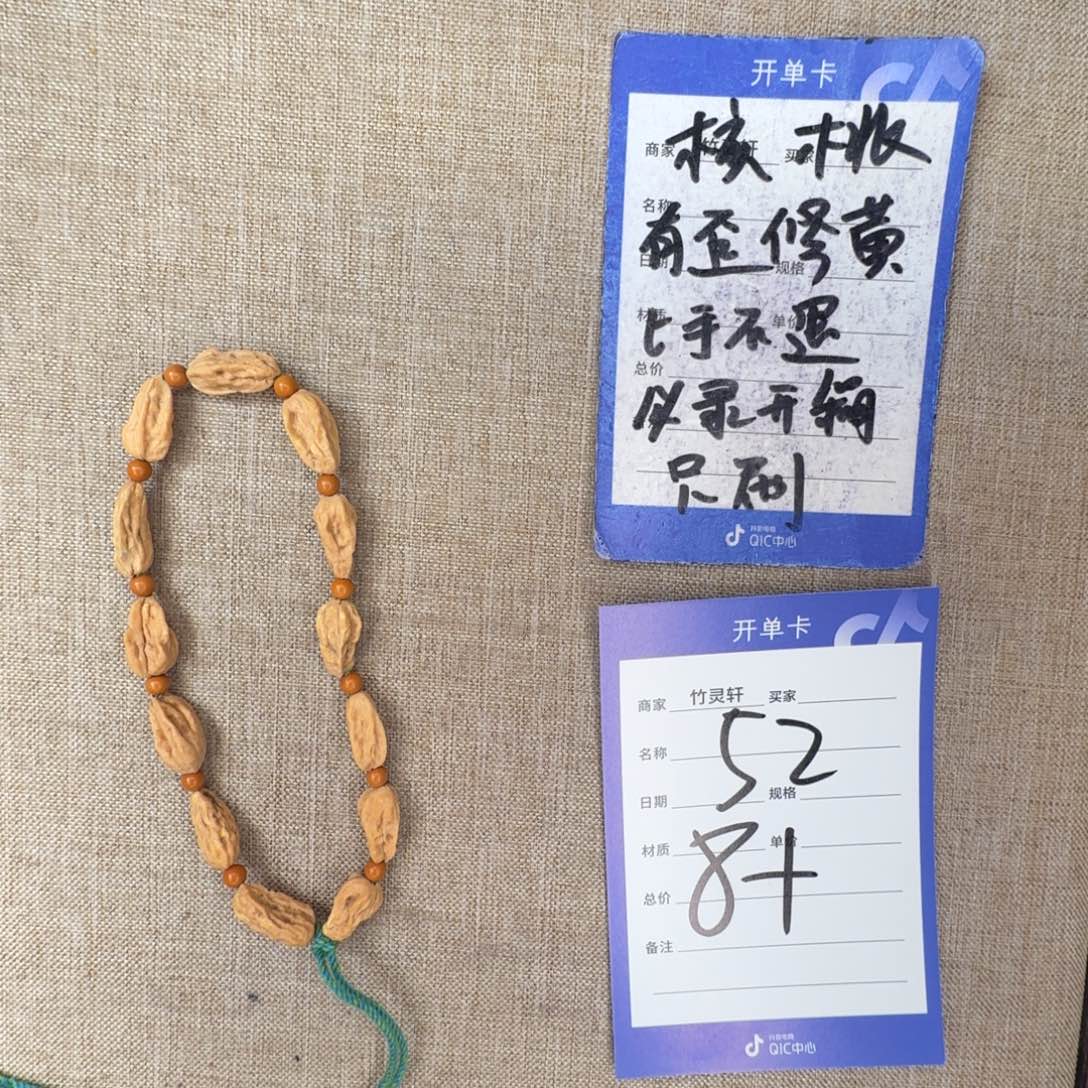 开单卡
核桃
商家 竹灵轩 买家
名称
有歪修黄
日期 规格
材质 单价
上手不退
总价
必录开箱
只刷
抖音电商
QIC中心
开单卡
商家 竹灵轩 买家
52
名称
日期 规格
材质 单价
8+
总价
备注
抖音电商
QIC中心